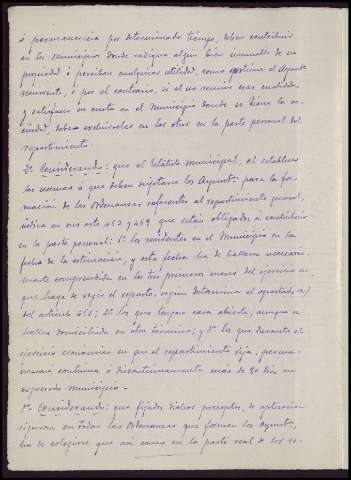 ó permanencia por determinado tiempo, deben contribuir
en los municipios donde radique algún bien inmueble de su
propiedad ó perciban cualquier utilidad, como sostiene el Ayunta
recurrente, ó por el contrario, si el no reunir esas cualidades
y satisfacer su cuota en el Municipio donde se tiene la ve-
cindad, deben excluírseles en los otros en la parte personal del
repartimiento.
2º Considerando: que el Estatuto municipal, al establecer
las normas á que deben sujetarse los Ayuntos para la for-
mación de las Ordenanzas referentes al repartimiento general,
indica en sus arts 462 y 469 que están obligados á contribuir
en la parte personal: 1º los residentes en el Municipio en la
fecha de la estimación, y esta fecha ha de hallarse necesaria-
mente comprendida en los tres primeros meses del ejercicio en
que haya de regir el reparto, según determina el apartado a)
del artículo 461; 2º los que tengan casa abierta, aunque se
hallen domiciliados en otro término; y 3º los que durante el
ejercicio económico en que el repartimiento rija, perma-
nezcan continua ó discontinuamente más de 90 días en
expresado municipio.
3º Considerando: que fijados dichos preceptos, de aplicación
rigurosa en todas las Ordenanzas que formen los Ayuntos,
ha de colegirse que así como en la parte real de los re-